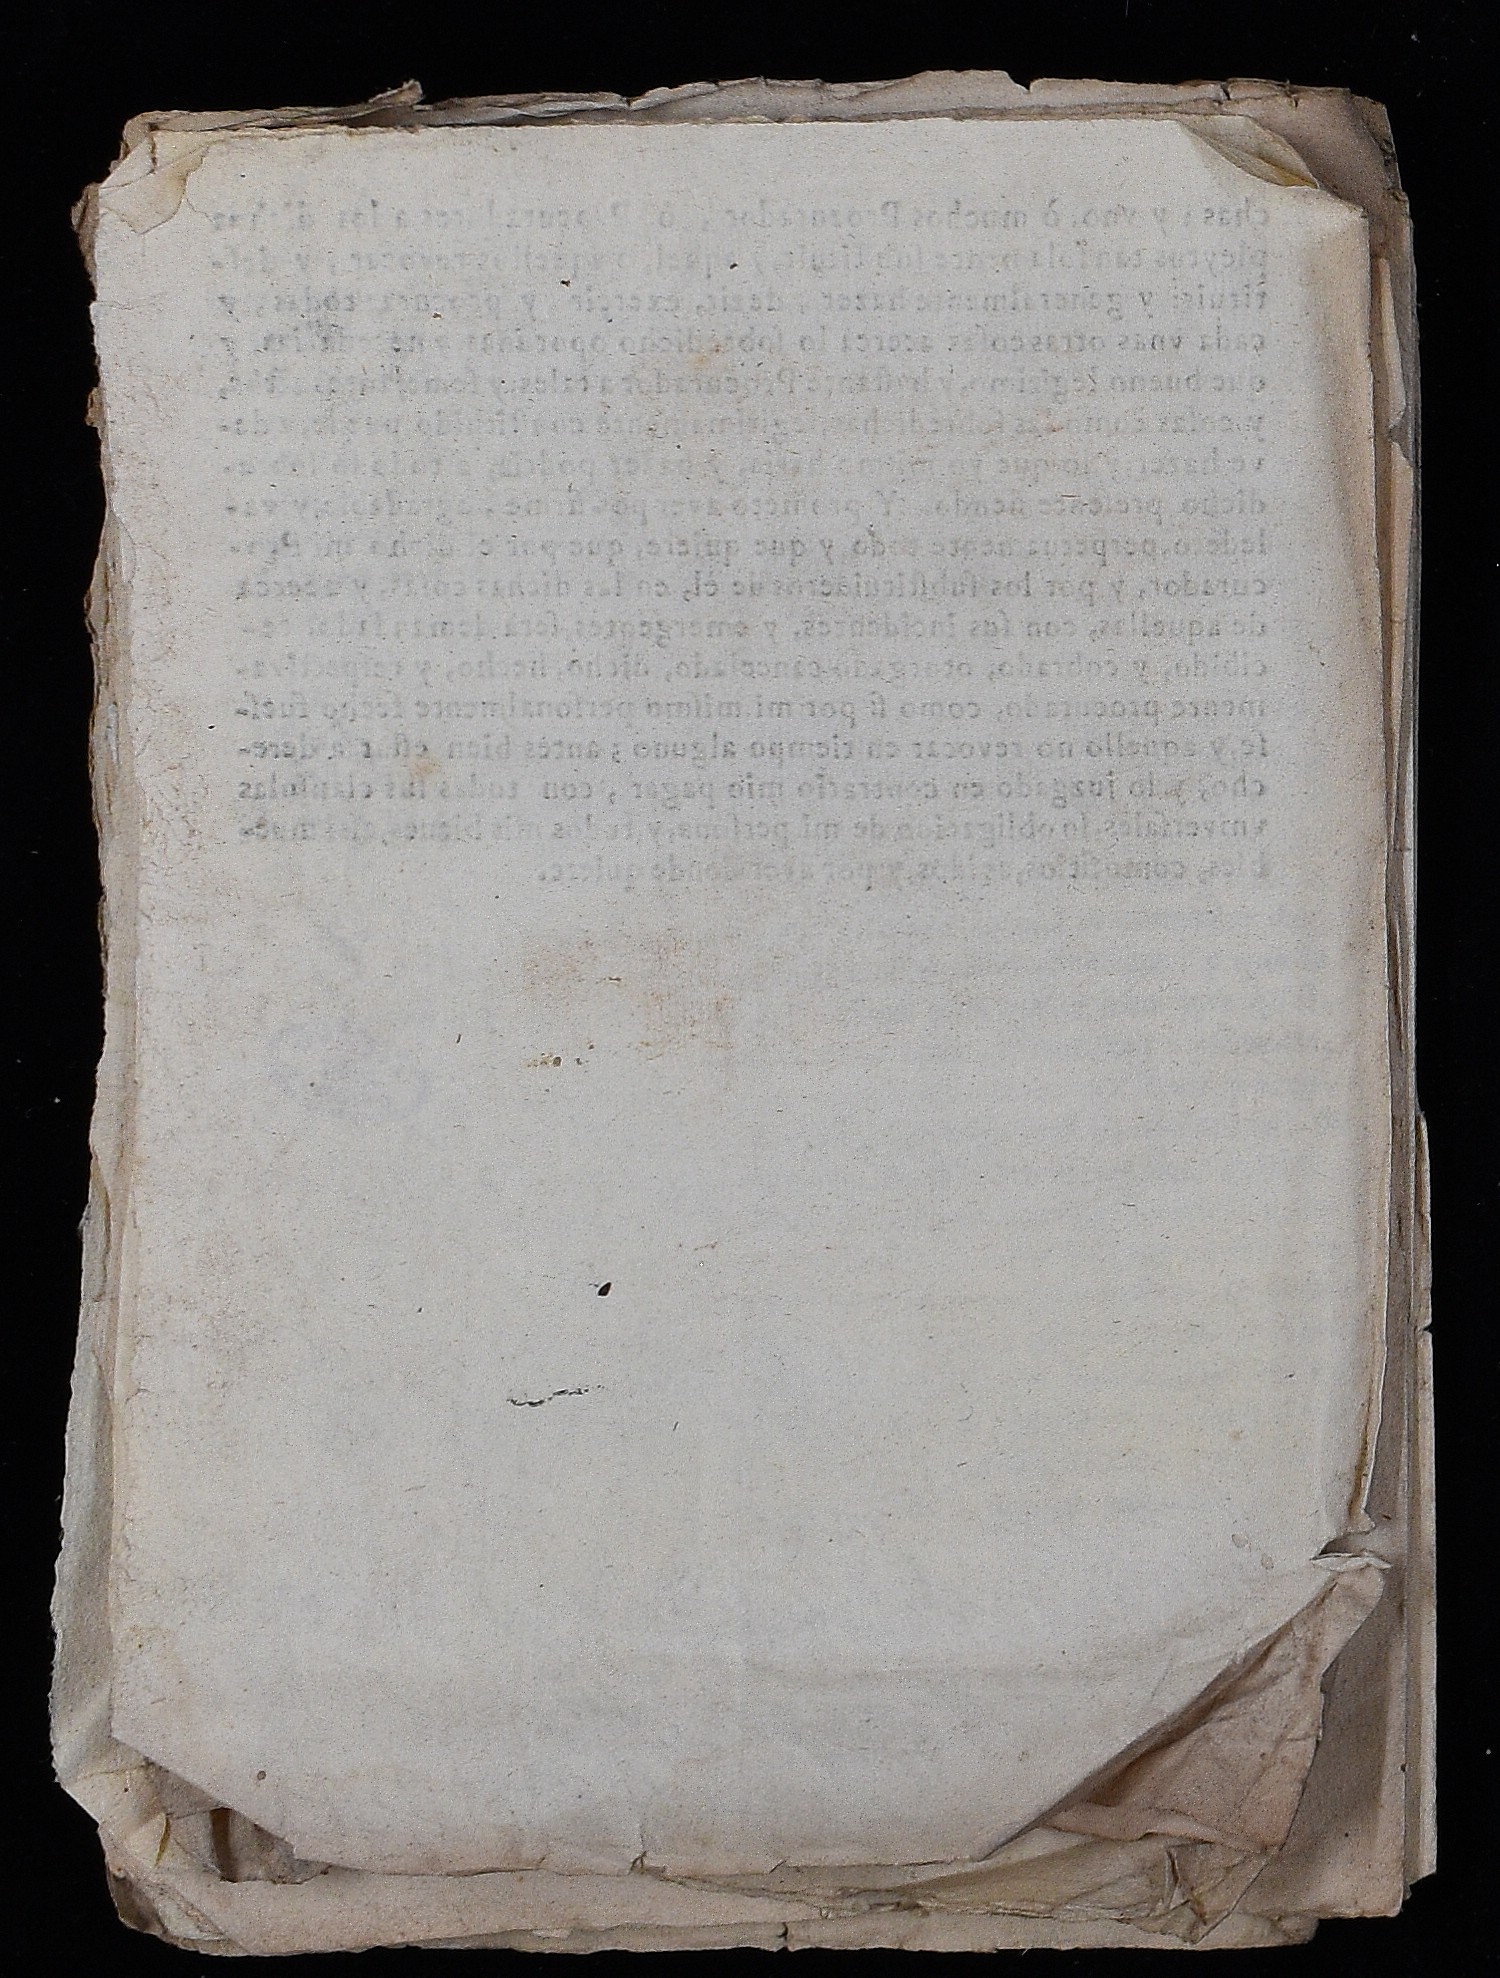 chas; y vno, ò muchos Procurador, ò Procuradores a los dichos
pleytos tan solamente substituir, y aquel, ò aquellos revocar, y des-
tituir: y generalmente hazer, dezir, exercir, y procurar todas, y
cada vnas otras cosas acerca lo sobredicho oportunas, y
que bueno, legitimo, y bastante Procurador a tales, y semejantes actos,
y cosas como las sobredichas, legitimamente constituido puede, y de-
ve hazer, y lo que yo mismo haria, y hazer podria, a todo lo sobre-
dicho presente siendo. Y prometo aver por firme, agradable, y va-
ledero, perpetuamente todo, y que quiere, que por el dicho mi Pro-
curador, y por los substituideros de él, en las dichas cosas, y acerca
de aquellas, con sus incidentes, y emergentes, será demandado, re-
cibido, y cobrado, otorgado, cancelado, dicho, hecho, y respectiva-
mente procurado, como si por mi mismo personalmente fecho fues-
se, y aquello no revocar en tiempo alguno; antes bien estar a dere-
cho, y lo juzgado en contrario mio pagar, con todas sus clausulas
vniversales, so obligacion de mi persona, y todos mis bienes, assi mue-
bles, como sitios, avidos, y por aver donde quiere.